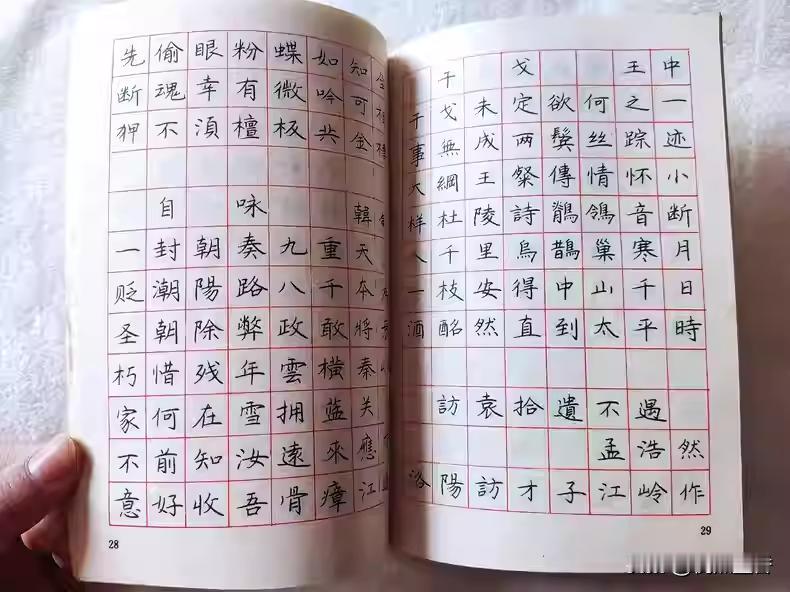 先偷眼粉蝶如知
断魂幸有微吟可
狎不湏檀板共金
自咏 韓
一封朝奏九重天
贬潮陽路八千本
圣朝除弊政敢將
朽惜残年雲橫秦
家何在雪拥蓝关
不前知汝遠來應
意好收吾骨瘴江
28
干戈 王中
干戈未定欲何之一
事無成两鬓丝踪迹
大綱王粲傳情怀小
样杜陵詩鶺鴒音断
人千里烏鵲巢寒月
一枝安得中山千日
酒酩然直到太平時
訪袁拾遺不遇
孟浩然
洛陽訪才子江岭作
29